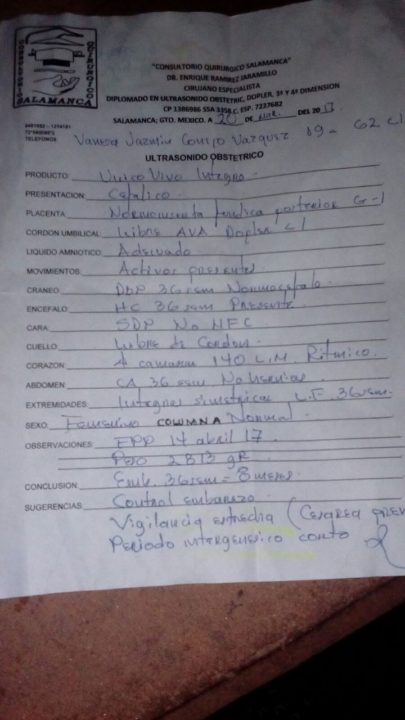 CONSULTORIO QUIRURGICO
SALAMANCA
"CONSULTORIO QUIRURGICO SALAMANCA"
DR. ENRIQUE RAMIREZ JARAMILLO
CIRUJANO ESPECIALISTA
DIPLOMADO EN ULTRASONIDO OBSTETRIC, DOPLER, 3ª Y 4ª DIMENSION
CP 1386986 SSA 3358 C. ESP. 7237682
SALAMANCA; GTO. MEXICO. A 20 DE MAR. DEL 20 17
TELEFONOS
Vanesa Yazmin Vazquez 19 - G2 C1
ULTRASONIDO OBSTETRICO
PRODUCTO: Unico Vivo Integro
PRESENTACION: Cefalico
PLACENTA Normoinserta fundica posterior G-1
CORDON UMBILICAL: Libre AVA Dopler
LIQUIDO AMNIOTICO Adecuado
MOVIMIENTOS: Activos presentes
CRANEO DBP 36 sem Normocefalo
ENCEFALO HC 36 sem Presente
CARA SDP No
CUELLO Libre de Cordon
CORAZON: 4 camaras 140 L.M. Ritmico.
ABDOMEN CA 36 sem No hernias
EXTREMIDADES: Integras simetricas L.F. 36 sem.
SEXO Femenino COLUMNA Normal
OBSERVACIONES: FPP 14 abril 17
Peso 2813 gr
CONCLUSIÓN Emb. 36 sem = 8 meses
SUGERENCIAS Control embarazo
Vigilancia estrecha (Cesarea
Periodo intergenesico corto